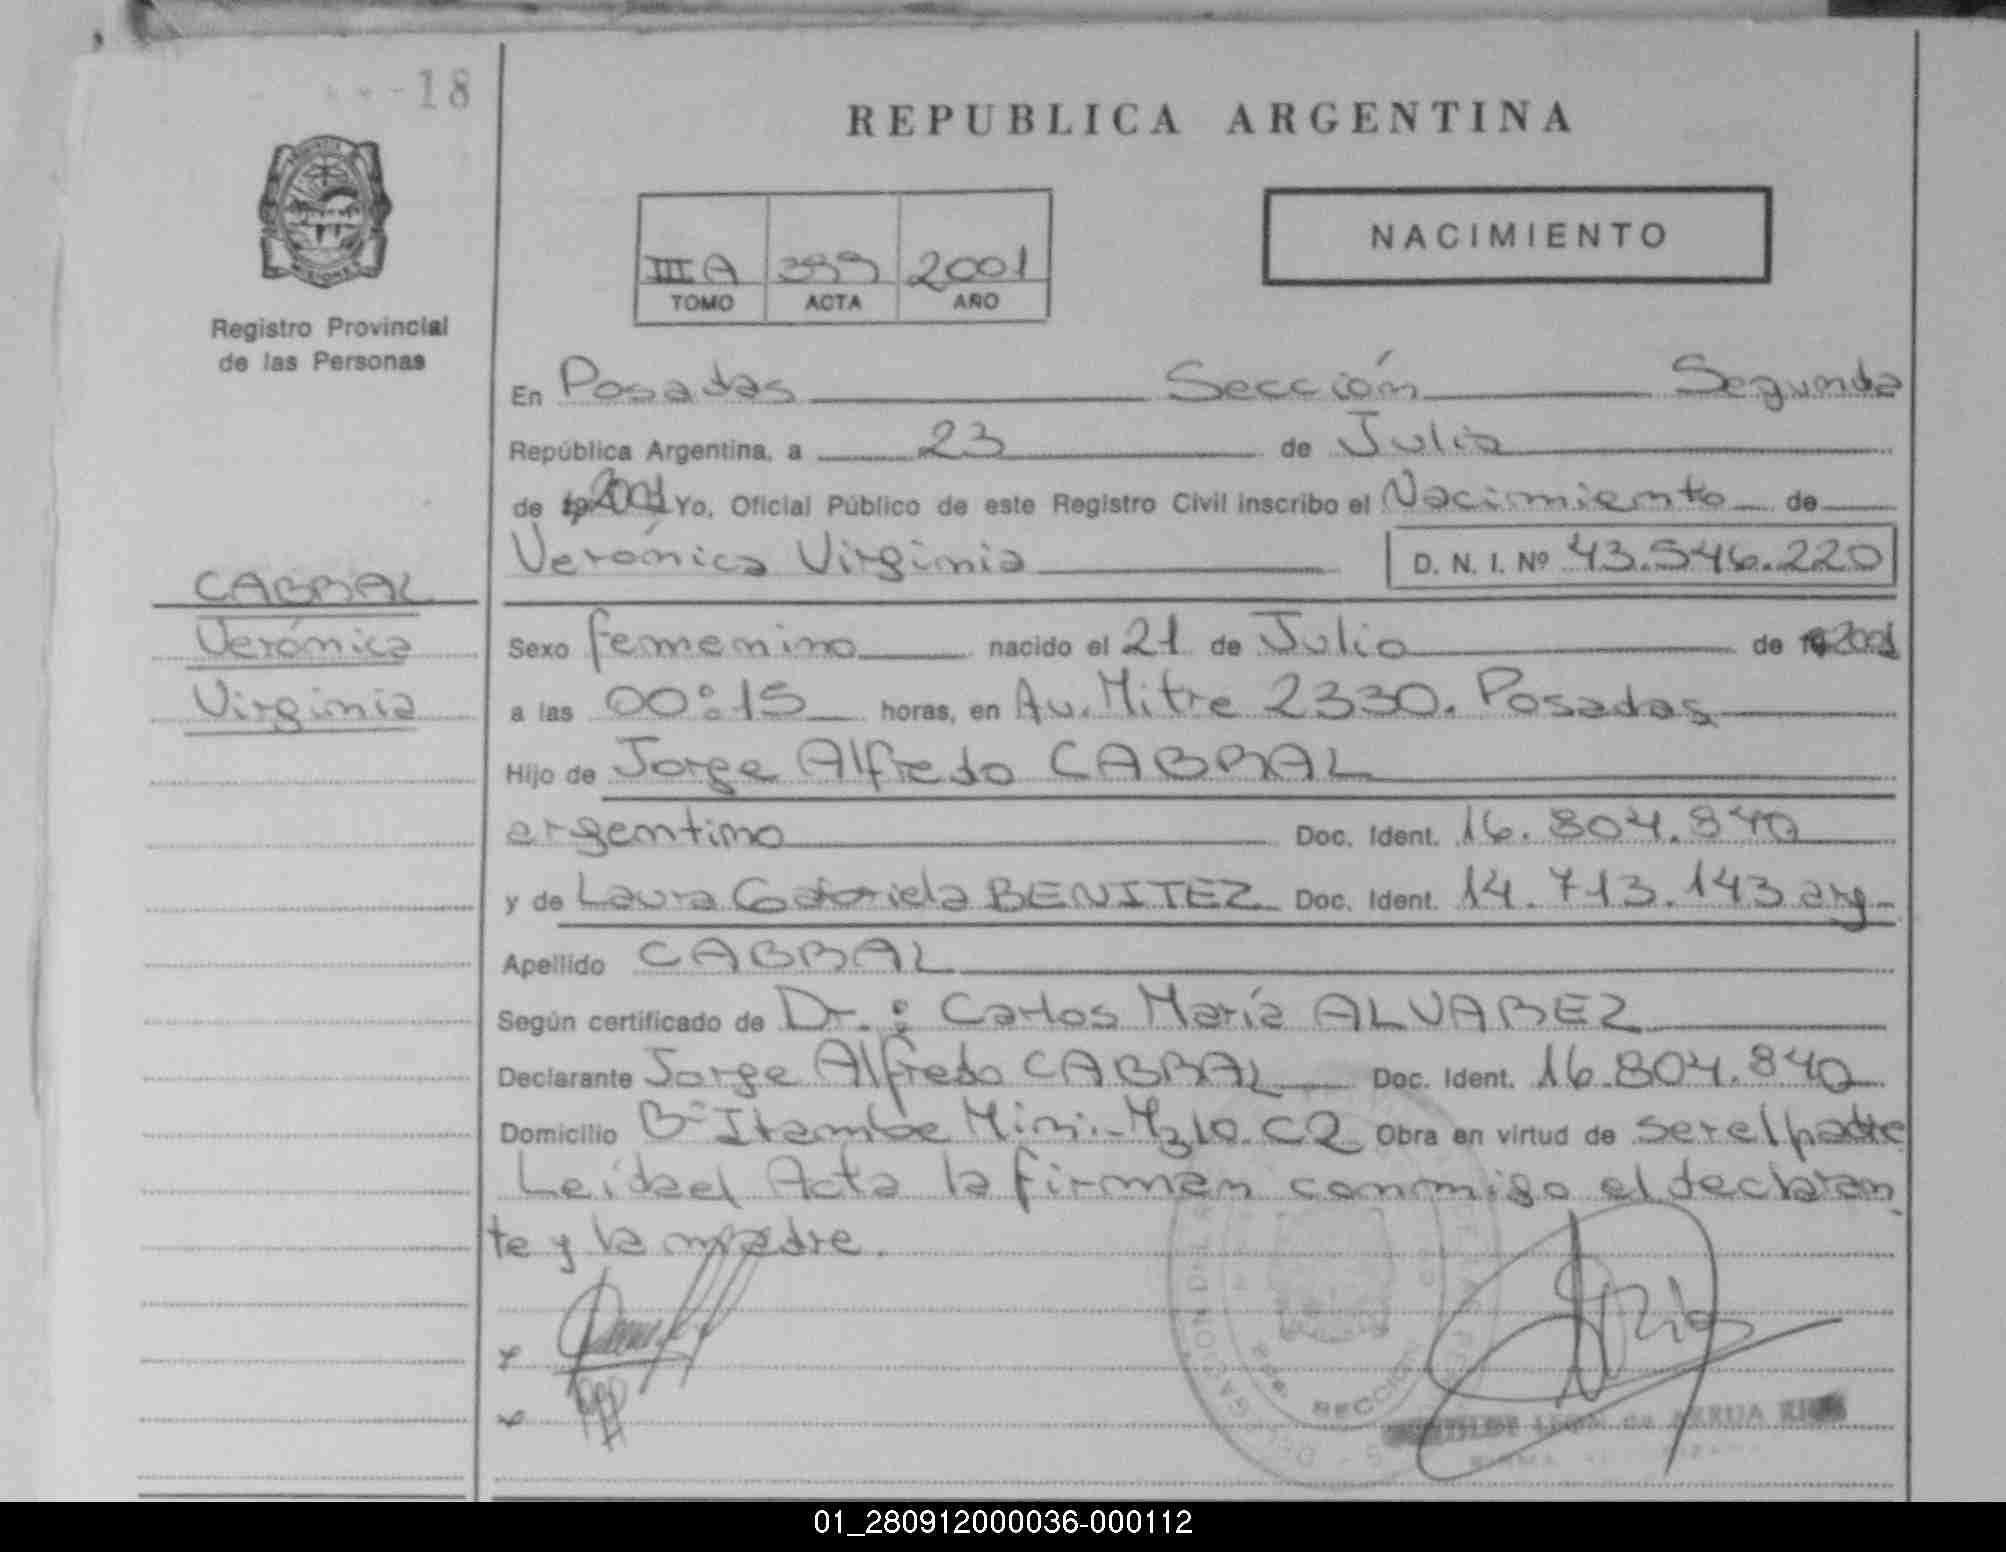 -18
REPUBLICA ARGENTINA
NACIMIENTO
III A 399 2001
TOMO ACTA AÑO
MISIONES
Registro Provincial
de las Personas
En Posadas Sección Segunda
República Argentina, a 23 de Julio
de 2001 Yo, Oficial Público de este Registro Civil inscribo el Nacimiento de
Verónica Virginia D. N. I. Nº 43.546.220
CABRAL
Verónica
Virginia
Sexo femenino nacido el 21 de Julio de 2001
a las 00:15 horas, en Av. Mitre 2330. Posadas
Hijo de Jorge Alfredo CABRAL
argentino Doc. Ident. 16.804.840
y de Laura Gabriela BENITEZ Doc. Ident. 14.713.143 arg-
Apellido CABRAL
Según certificado de Dr.: Carlos María ALVAREZ
Declarante Jorge Alfredo CABRAL Doc. Ident. 16.804.840
Domicilio Bº Itambe Mini-Mz10.C2 Obra en virtud de ser el padre
Leída el Acta la firman conmigo el declaran
te y la madre.
SECCION
de ARRUA
01_280912000036-000112